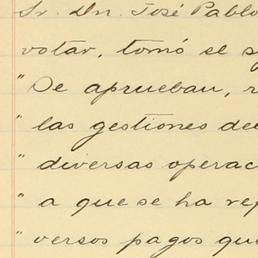 Sr. Dn. José Pablo
votar, tomó se s
" De aprueban, r
" las gestiones de
" diversas operac
" a que se ha re
" versos pagos que